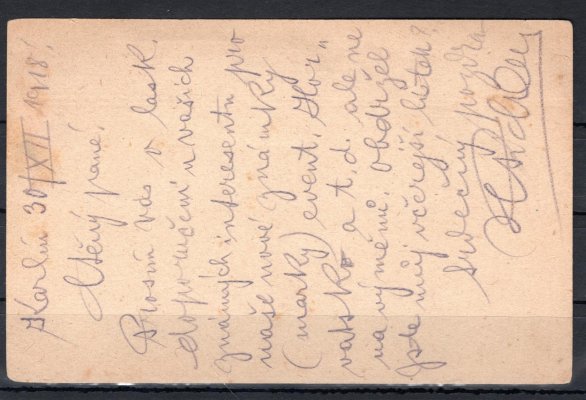 Karlín 30/XII 1918.
Ctěný pane,
Prosím vás o lask.
doporučení u vašich
známých interesentů pro
naše nové známky
(marky) event. Chor„
vatsko a t. d. ale ne
na výměnu. Obdržel
jste můj včerejší lístek?
Srdečný pozdrav